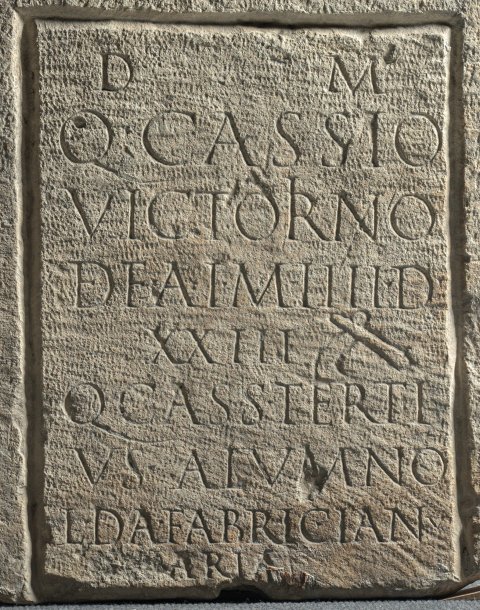 D M
Q · CASSIO
VICTORNO
DEAIMIIII·D
XXIII
Q CASS·TERTI
VS ALVMNO
L·DAFABRICIAN
ARIA